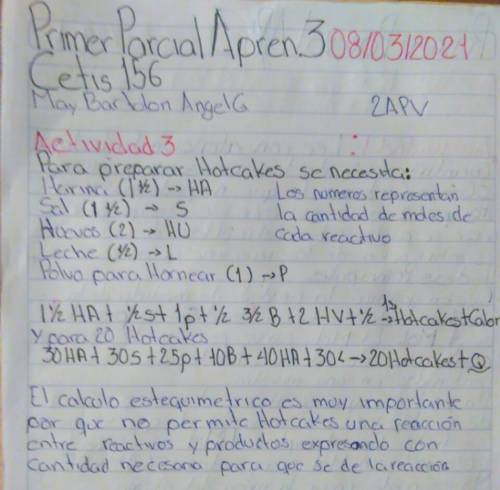 Primer Parcial Apren.3 08/03/2021
Cetis 156
May Barldon Angel G 2APV
Actividad 3 :
Para preparar Hotcakes se necesita:
Harina (1 ½) → HA Los numeros representan
Sal (1 ½) → S la cantidad de moles de
Huevos (2) → HU cada reactivo
Leche (½) → L
Polvo para Hornear (1) → P
1½ HA + ½ s + 1p + ½ 3/2 B + 2 HV + ½ → Hotcakes + Calor
y para 20 Hotcakes
30HA + 30s + 25p + 10B + 40HA + 30L → 20 Hotcakes + Q
El calculo estequimetrico es muy importante
por que no permite Hotcakes una reacción
entre reactivos y productos expresando con
cantidad necesaria para que se de la reacción